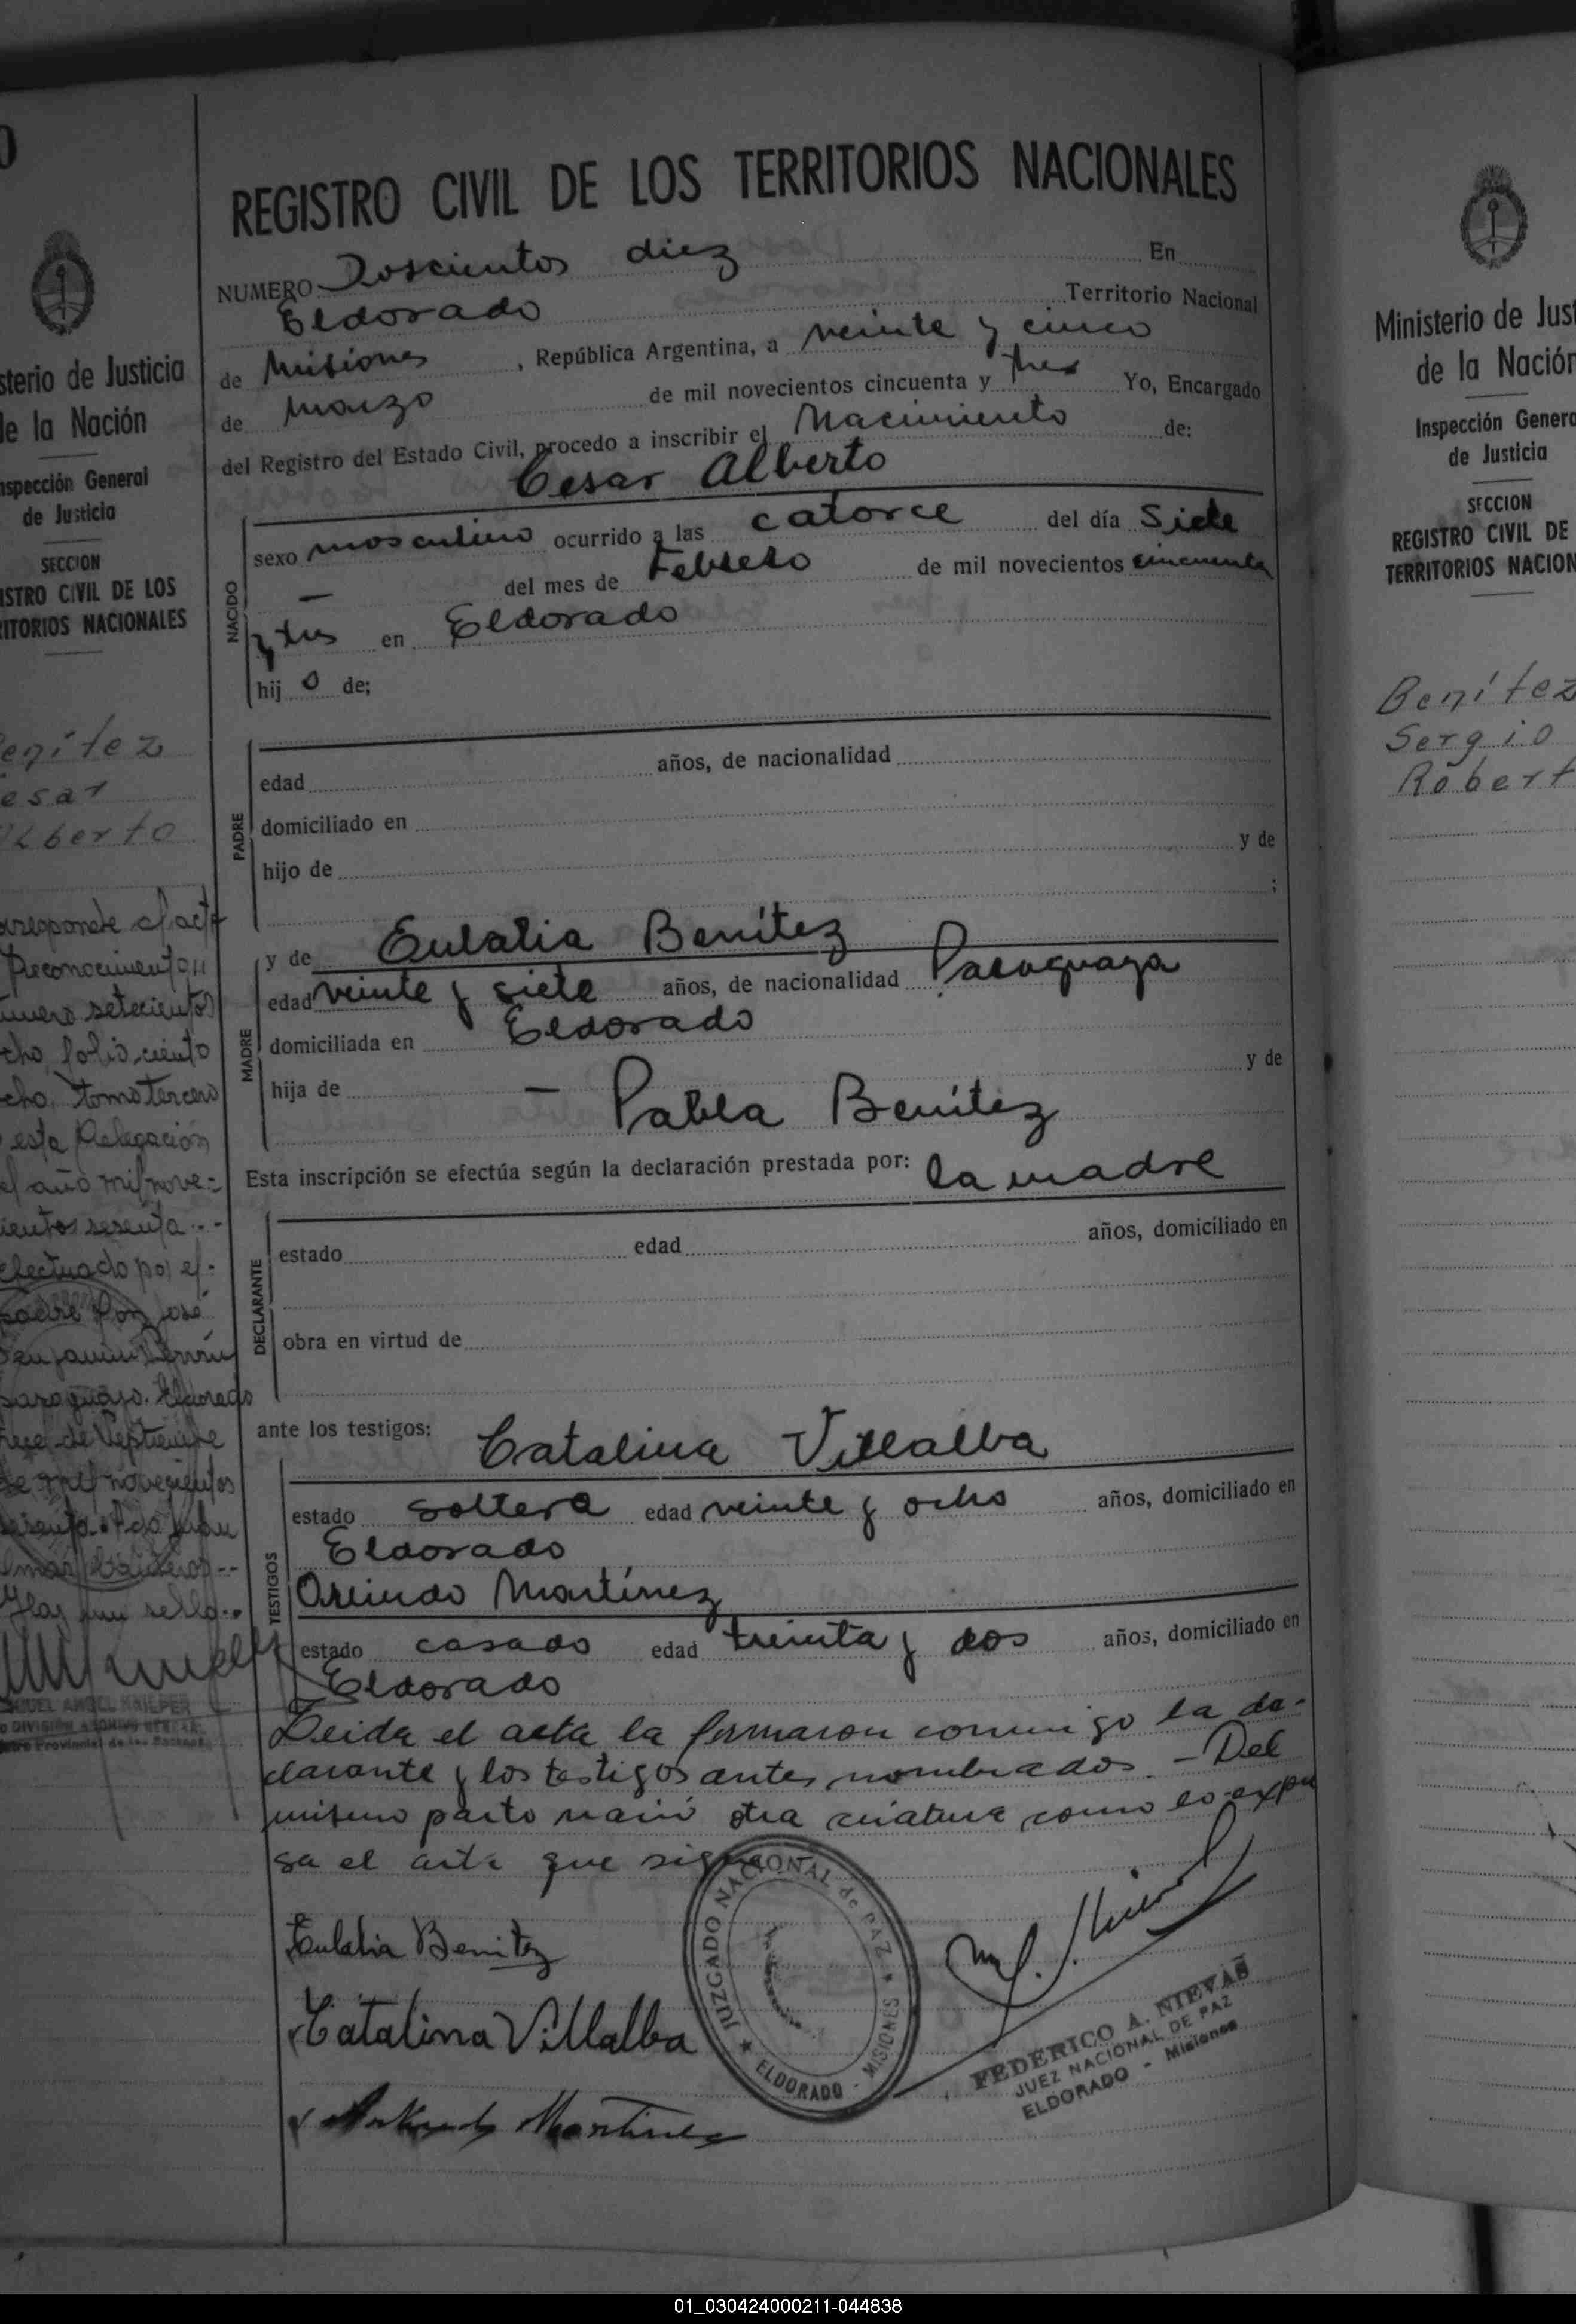 REGISTRO CIVIL DE LOS TERRITORIOS NACIONALES
NUMERO Doscientos diez En
Eldorado Territorio Nacional
de Misiones, República Argentina, a veinte y cinco
de Marzo de mil novecientos cincuenta y tres Yo, Encargado
del Registro del Estado Civil, procedo a inscribir el Nacimiento de:
Cesar Alberto
NACIDO
sexo masculino ocurrido a las catorce del día Siete
— del mes de Febrero de mil novecientos cincuenta
y tres en Eldorado
hij o de;
PADRE
edad años, de nacionalidad
domiciliado en
hijo de y de
;
MADRE
y de Eulalia Benítez
edad veinte y siete años, de nacionalidad Paraguaya
domiciliada en Eldorado
hija de — y de
Pabla Benítez
Esta inscripción se efectúa según la declaración prestada por: la madre
DECLARANTE
estado edad años, domiciliado en
obra en virtud de
ante los testigos: Catalina Villalba
TESTIGOS
estado soltera edad veinte y ocho años, domiciliado en
Eldorado
Martínez
estado casado edad treinta y dos años, domiciliado en
Eldorado
Leida el acta la firmaron conmigo la de-
clarante y los testigos antes nombrados. - Del
mismo parto nació otra criatura como lo expre
sa el acta que sigue
Eulalia Benitez
Catalina Villalba
Martinez
JUZGADO NACIONAL de PAZ
ELDORADO - MISIONES
FEDERICO A. NIEVAS
JUEZ NACIONAL DE PAZ
ELDORADO - Misiones
0
sterio de Justicia
de la Nación
nspección General
de Justicia
SECCION
ISTRO CIVIL DE LOS
RITORIOS NACIONALES
enítez
esar
lberto
corresponde al acta
Reconocimiento
número setecientos
cho, folio ciento
cho, tomo tercero
esta Delegación
el año mil nove-
cientos sesenta
efectuado por el
padre Don José
Benjamin
paraguayo. Eldorado
de Septiembre
de mil novecientos
sesenta.
Hay un sello
MIGUEL ANGEL
DIVISION ARCHIVO
Provincial de las Personas
Ministerio de Jus
de la Nación
Inspección Genera
de Justicia
SECCION
REGISTRO CIVIL DE
TERRITORIOS NACION
Benítez
Sergio
Robert
01_030424000211-044838